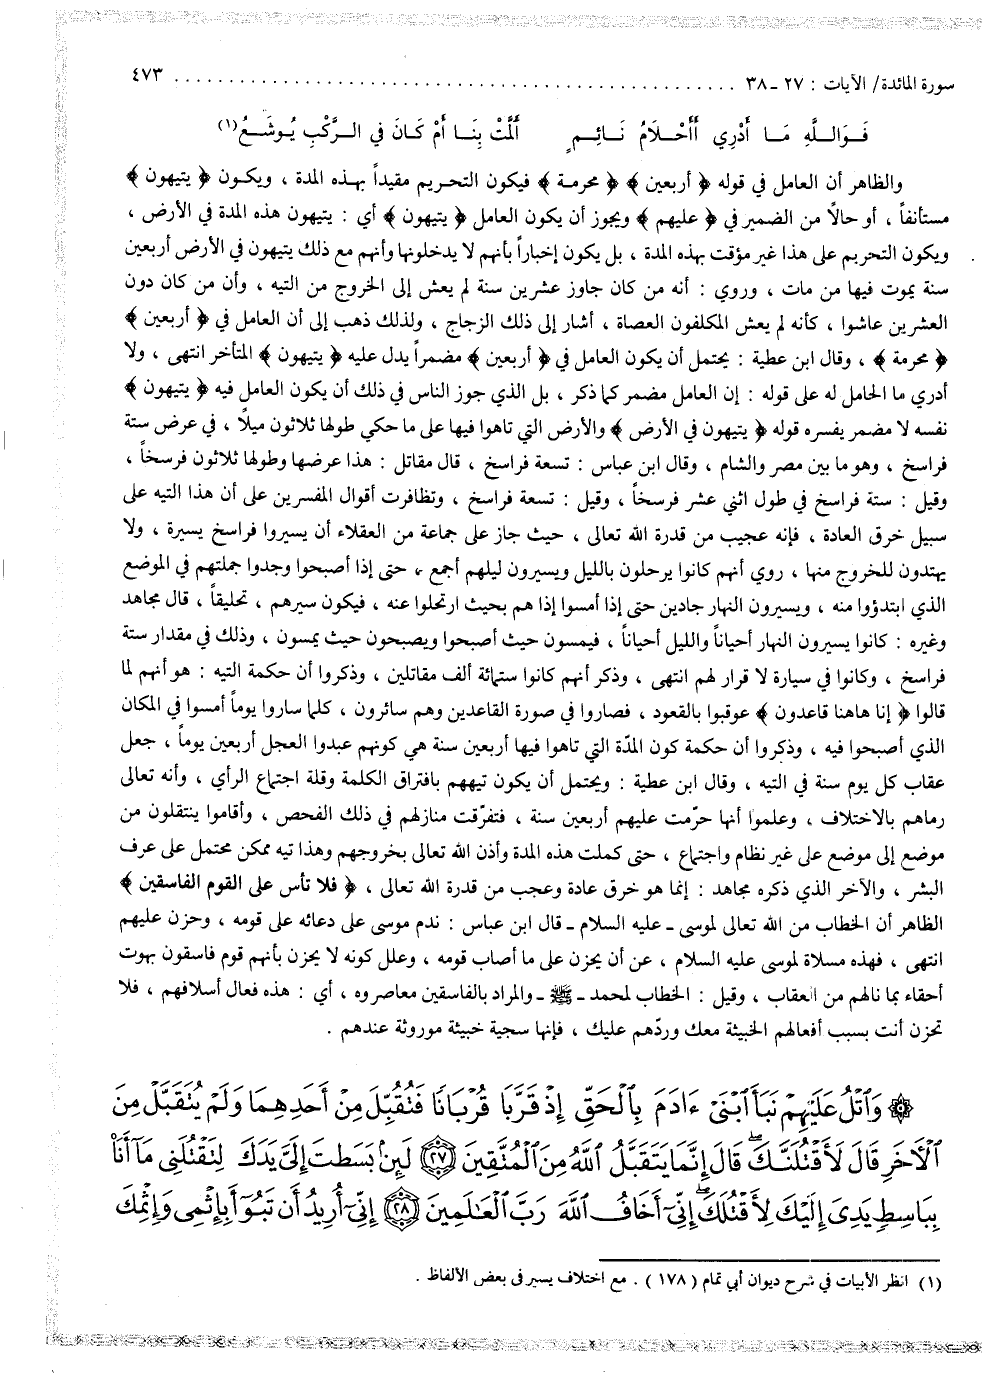 سورة المائدة/ الآيات : ٢٧ ـ ٣٨ . . . . . . . . . . . . . . . . . . . . . . . . . . . . . . . . . . . . . . . . ٤٧٣
فَوَاللَّهِ مَا أَدْرِي أَأَحْلَامُ نَائِمٍ أَلَمَّتْ بِنَا أَمْ كَانَ فِي الرَّكْبِ يُوشَعُ(١)
والظاهر أن العامل في قوله ﴿ أربعين ﴾ ﴿ محرمة ﴾ فيكون التحريم مقيداً بهذه المدة ، ويكون ﴿ يتيهون ﴾
مستأنفاً ، أو حالًا من الضمير في ﴿ عليهم ﴾ ويجوز أن يكون العامل ﴿ يتيهون ﴾ أي : يتيهون هذه المدة في الأرض ،
ويكون التحريم على هذا غير مؤقت بهذه المدة ، بل يكون إخباراً بأنهم لا يدخلونها وأنهم مع ذلك يتيهون في الأرض أربعين
سنة يموت فيها من مات ، وروي : أنه من كان جاوز عشرين سنة لم يعش إلى الخروج من التيه ، وأن من كان دون
العشرين عاشوا ، كأنه لم يعش المكلفون العصاة ، أشار إلى ذلك الزجاج ، ولذلك ذهب إلى أن العامل في ﴿ أربعين ﴾
﴿ محرمة ﴾ ، وقال ابن عطية : يحتمل أن يكون العامل في ﴿ أربعين ﴾ مضمراً يدل عليه ﴿ يتيهون ﴾ المتأخر انتهى ، ولا
أدري ما الحامل له على قوله : إن العامل مضمر كما ذكر ، بل الذي جوز الناس في ذلك أن يكون العامل فيه ﴿ يتيهون ﴾
نفسه لا مضمر يفسره قوله ﴿ يتيهون في الأرض ﴾ والأرض التي تاهوا فيها على ما حكي طولها ثلاثون ميلًا ، في عرض ستة
فراسخ ، وهو ما بين مصر والشام ، وقال ابن عباس : تسعة فراسخ ، قال مقاتل : هذا عرضها وطولها ثلاثون فرسخاً ،
وقيل : ستة فراسخ في طول اثني عشر فرسخاً ، وقيل : تسعة فراسخ ، وتظافرت أقوال المفسرين على أن هذا التيه على
سبيل خرق العادة ، فإنه عجيب من قدرة الله تعالى ، حيث جاز على جماعة من العقلاء أن يسيروا فراسخ يسيرة ، ولا
يهتدون للخروج منها ، روي أنهم كانوا يرحلون بالليل ويسيرون ليلهم أجمع ، حتى إذا أصبحوا وجدوا جملتهم في الموضع
الذي ابتدؤوا منه ، ويسيرون النهار جادين حتى إذا أمسوا إذا هم بحيث ارتحلوا عنه ، فيكون سيرهم ، تحليقاً ، قال مجاهد
وغيره : كانوا يسيرون النهار أحياناً والليل أحياناً ، فيمسون حيث أصبحوا ويصبحون حيث يمسون ، وذلك في مقدار ستة
فراسخ ، وكانوا في سيارة لا قرار لهم انتهى ، وذكر أنهم كانوا ستمائة ألف مقاتلين ، وذكروا أن حكمة التيه : هو أنهم لما
قالوا ﴿ إنا هاهنا قاعدون ﴾ عوقبوا بالقعود ، فصاروا في صورة القاعدين وهم سائرون ، كلما ساروا يوماً أمسوا في المكان
الذي أصبحوا فيه ، وذكروا أن حكمة كون المدّة التي تاهوا فيها أربعين سنة هي كونهم عبدوا العجل أربعين يوماً ، جعل
عقاب كل يوم سنة في التيه ، وقال ابن عطية : ويحتمل أن يكون تيههم بافتراق الكلمة وقلة اجتماع الرأي ، وأنه تعالى
رماهم بالاختلاف ، وعلموا أنها حرّمت عليهم أربعين سنة ، فتفرّقت منازلهم في ذلك الفحص ، وأقاموا ينتقلون من
موضع إلى موضع على غير نظام واجتماع ، حتى كملت هذه المدة وأذن الله تعالى بخروجهم وهذا تيه ممكن محتمل على عرف
البشر ، والآخر الذي ذكره مجاهد : إنما هو خرق عادة وعجب من قدرة الله تعالى ، ﴿ فلا تأس على القوم الفاسقين ﴾
الظاهر أن الخطاب من الله تعالى لموسى ـ عليه السلام ـ قال ابن عباس : ندم موسى على دعائه على قومه ، وحزن عليهم
انتهى ، فهذه مسلاة لموسى عليه السلام ، عن أن يحزن على ما أصاب قومه ، وعلل كونه لا يحزن بأنهم قوم فاسقون بهوت
أحقاء بما نالهم من العقاب ، وقيل : الخطاب لمحمد ـ ﷺ ـ والمراد بالفاسقين معاصروه ، أي : هذه فعال أسلافهم ، فلا
تحزن أنت بسبب أفعالهم الخبيثة معك وردّهم عليك ، فإنها سجية خبيثة موروثة عندهم .
۞ وَٱتْلُ عَلَيْهِمْ نَبَأَ ٱبْنَىْ ءَادَمَ بِٱلْحَقِّ إِذْ قَرَّبَا قُرْبَانًا فَتُقُبِّلَ مِنْ أَحَدِهِمَا وَلَمْ يُتَقَبَّلْ مِنَ
ٱلْـَٔاخَرِ قَالَ لَأَقْتُلَنَّكَ ۖ قَالَ إِنَّمَا يَتَقَبَّلُ ٱللَّهُ مِنَ ٱلْمُتَّقِينَ ﴿٢٧﴾ لَئِنۢ بَسَطتَ إِلَىَّ يَدَكَ لِتَقْتُلَنِى مَآ أَنَا۠
بِبَاسِطٍ يَدِىَ إِلَيْكَ لِأَقْتُلَكَ ۖ إِنِّىٓ أَخَافُ ٱللَّهَ رَبَّ ٱلْعَـٰلَمِينَ ﴿٢٨﴾ إِنِّىٓ أُرِيدُ أَن تَبُوٓأَ بِإِثْمِى وَإِثْمِكَ
(١) انظر الأبيات في شرح ديوان أبي تمام ( ١٧٨ ) . مع اختلاف يسير في بعض الألفاظ .